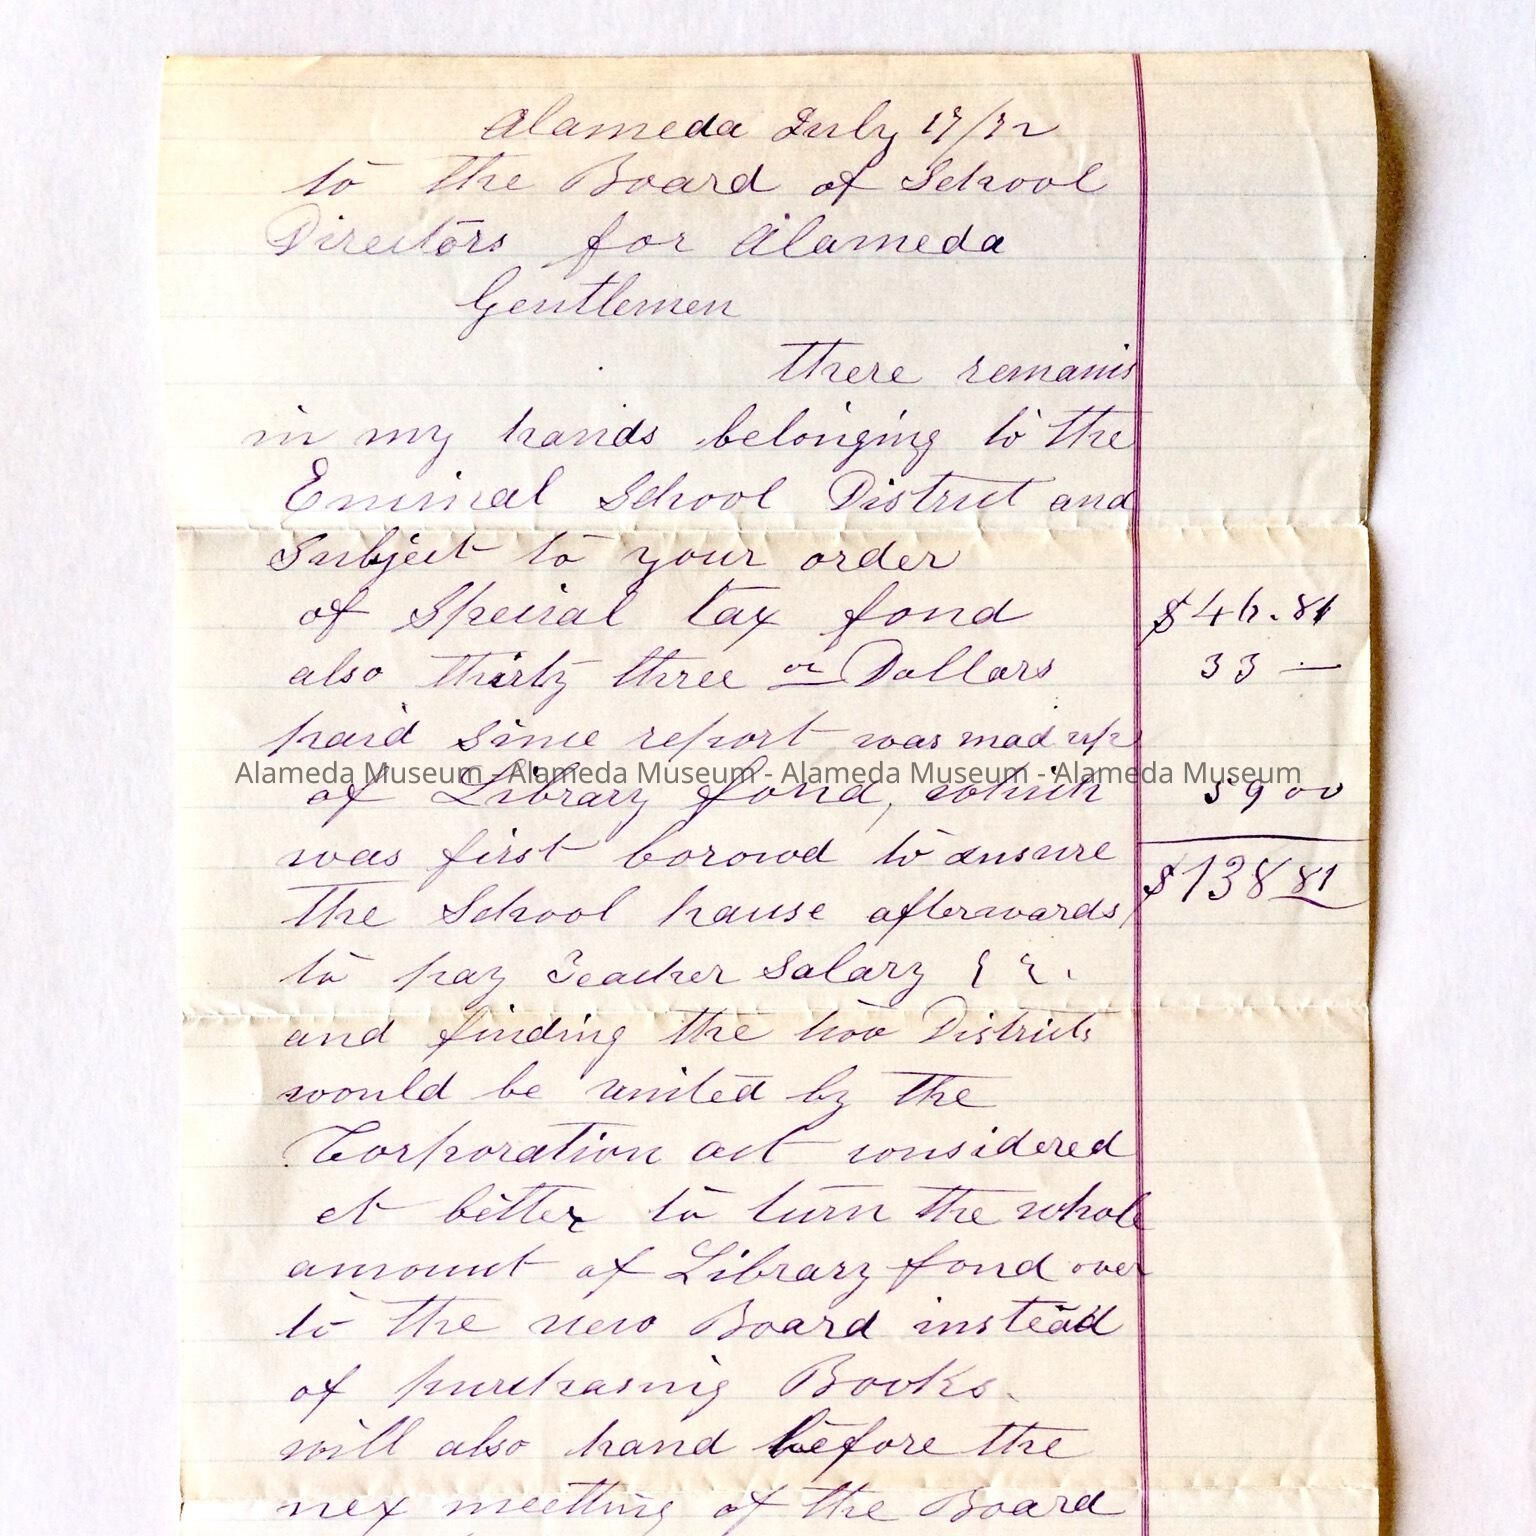 Alameda July 17/72
to the Board of School
Directors for Alameda
Gentlemen
there remains
in my hands belonging to the
Encinal School District and
Subject to your order
of Special tax fond $46.81
also thirty three Dollars 33 —
paid Since report was mad up
Alameda Museum - Alameda Museum - Alameda Museum - Alameda Museum
of Library fond, which 59 00
was first borowd to ensure
the School hause afterwards $138 81
to pay Teacher Salary &c.
and finding the two Districts
would be united by the
Corporation act considered
et better to turn the whole
amount of Library fond over
to the new Board instead
of purchasing Books.
will also hand before the
nex meetting of the Board